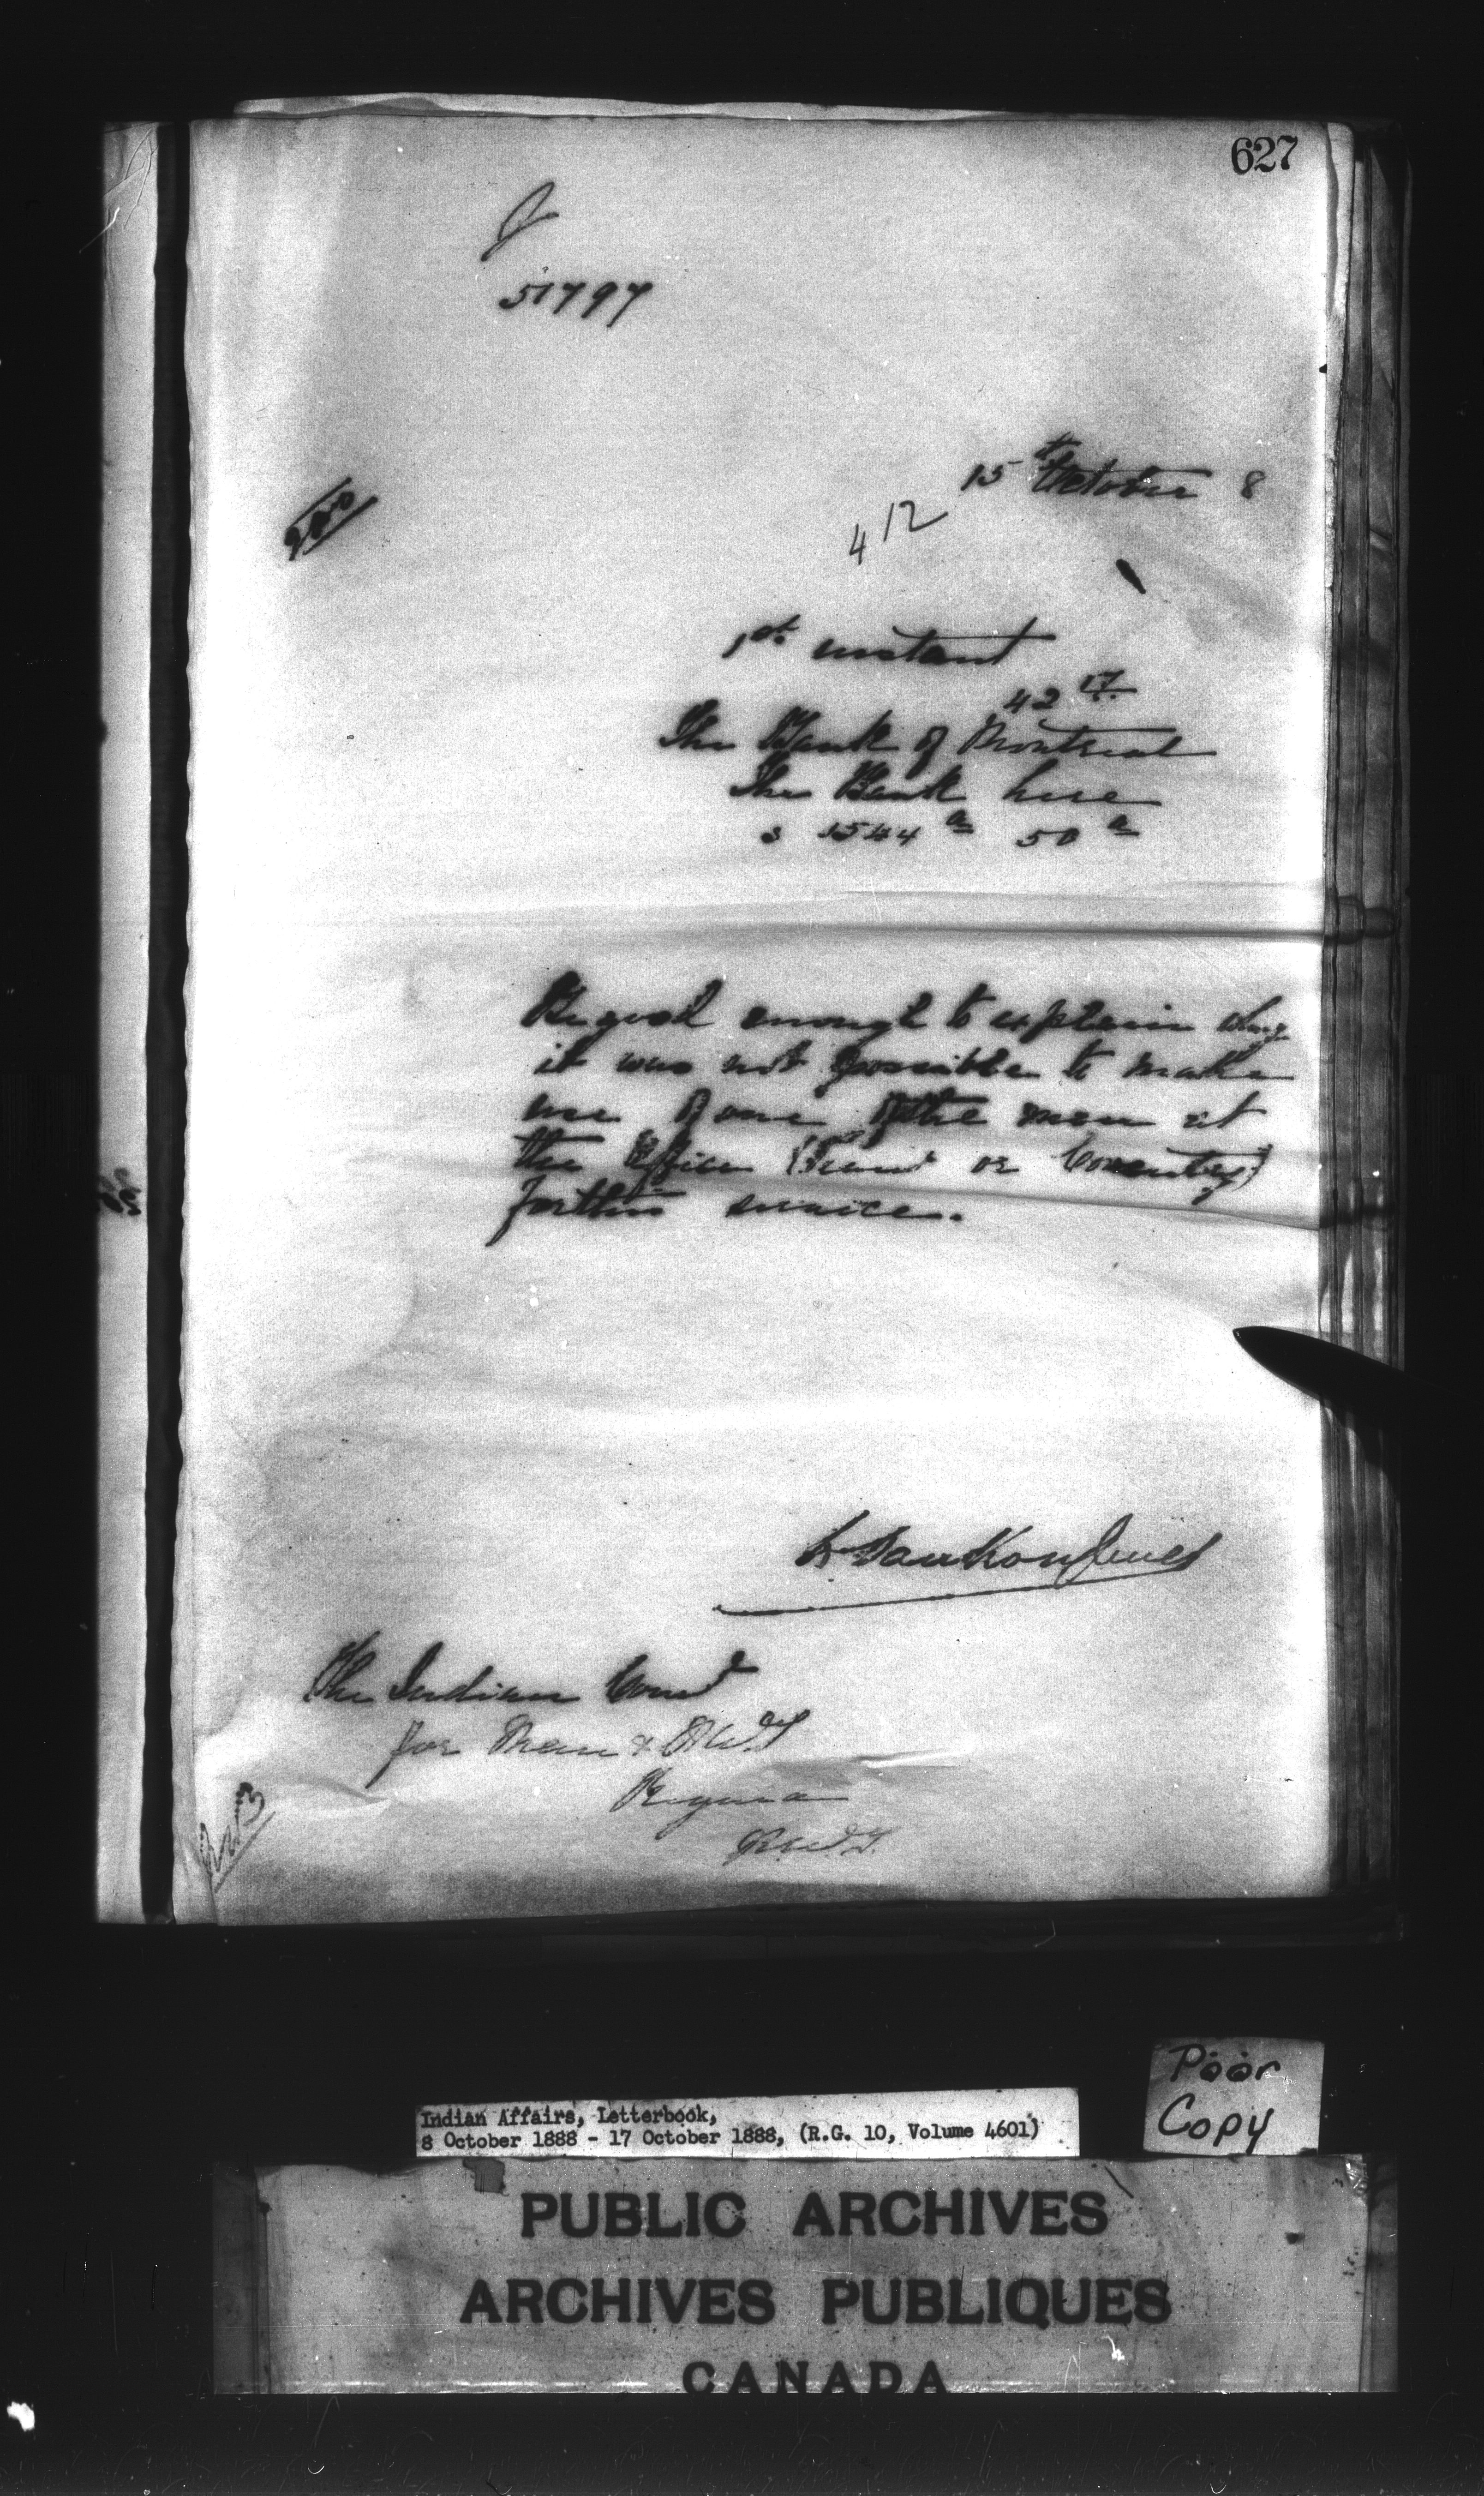 627
J
51797
15th October 8
412
1st instant
42 17
The Bank of Montreal
The Bank here
$ 1544 50
Be good enough to explain why
it was not possible to make
use of one of the men at
the Office ( or Coventry)
for this service.
L. Vankoughnet
The Indian Comr
for Man & N.W.T
Regina
N.W.T.
Poor
Copy
Indian Affairs, Letterbook,
8 October 1888 - 17 October 1888, (R.G. 10, Volume 4601)
PUBLIC ARCHIVES
ARCHIVES PUBLIQUES
CANADA